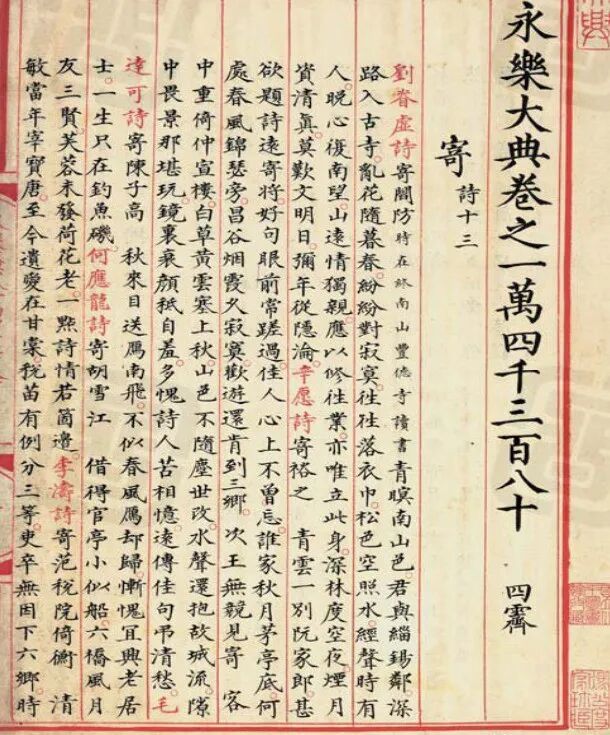 永樂大典卷之一萬四千三百八十 四霽
寄 詩十三
劉眘虛詩寄閻防時在終南山豐德寺讀書 青暝南山邑君與緇錫鄰深
路入古寺亂花隨暮春紛紛對寂寞徃徃落衣巾松色空照水經聲時有
人晚心復南望山遠情獨親應以修徃業亦唯立此身深林度空夜煙月
資清眞莫歎文明日彌年從隱淪辛愿詩寄裕之 青雲一別阮家郎甚
欲題詩遠寄將好句眼前常蹉過佳人心上不曾忘誰家秋月茅亭底何
處春風錦瑟旁昌谷烟霞久寂寞歡遊還肯到三鄉 次王無競見寄 客
中重倚仲宣樓白草黃雲塞上秋山邑不隨塵世改水聲還抱故城流隙
中畏景那堪玩鏡裏衰顏秖自羞多愧詩人苦相憶遠傳佳句弔清愁毛
達可詩寄陳子高 秋來目送鴈南飛不似春風鴈却歸慚愧宜興老居
士一生只在釣魚磯何應龍詩寄胡雪江 借得官亭小似船六橋風月
友三賢芙蓉未發荷花老一點詩情若箇邊李濤詩寄范稅院倚衡 清
敏當年宰寶唐至今遺愛在甘棠稅苗有例分三等吏卒無因下六鄉時